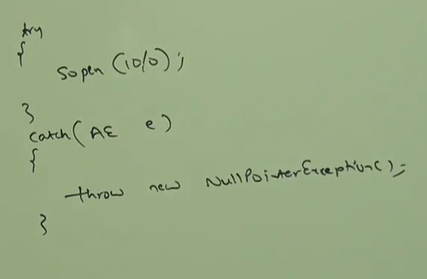 try
{
sopln (10/0);
}
catch(AE e)
{
throw new NullPointerException();
}